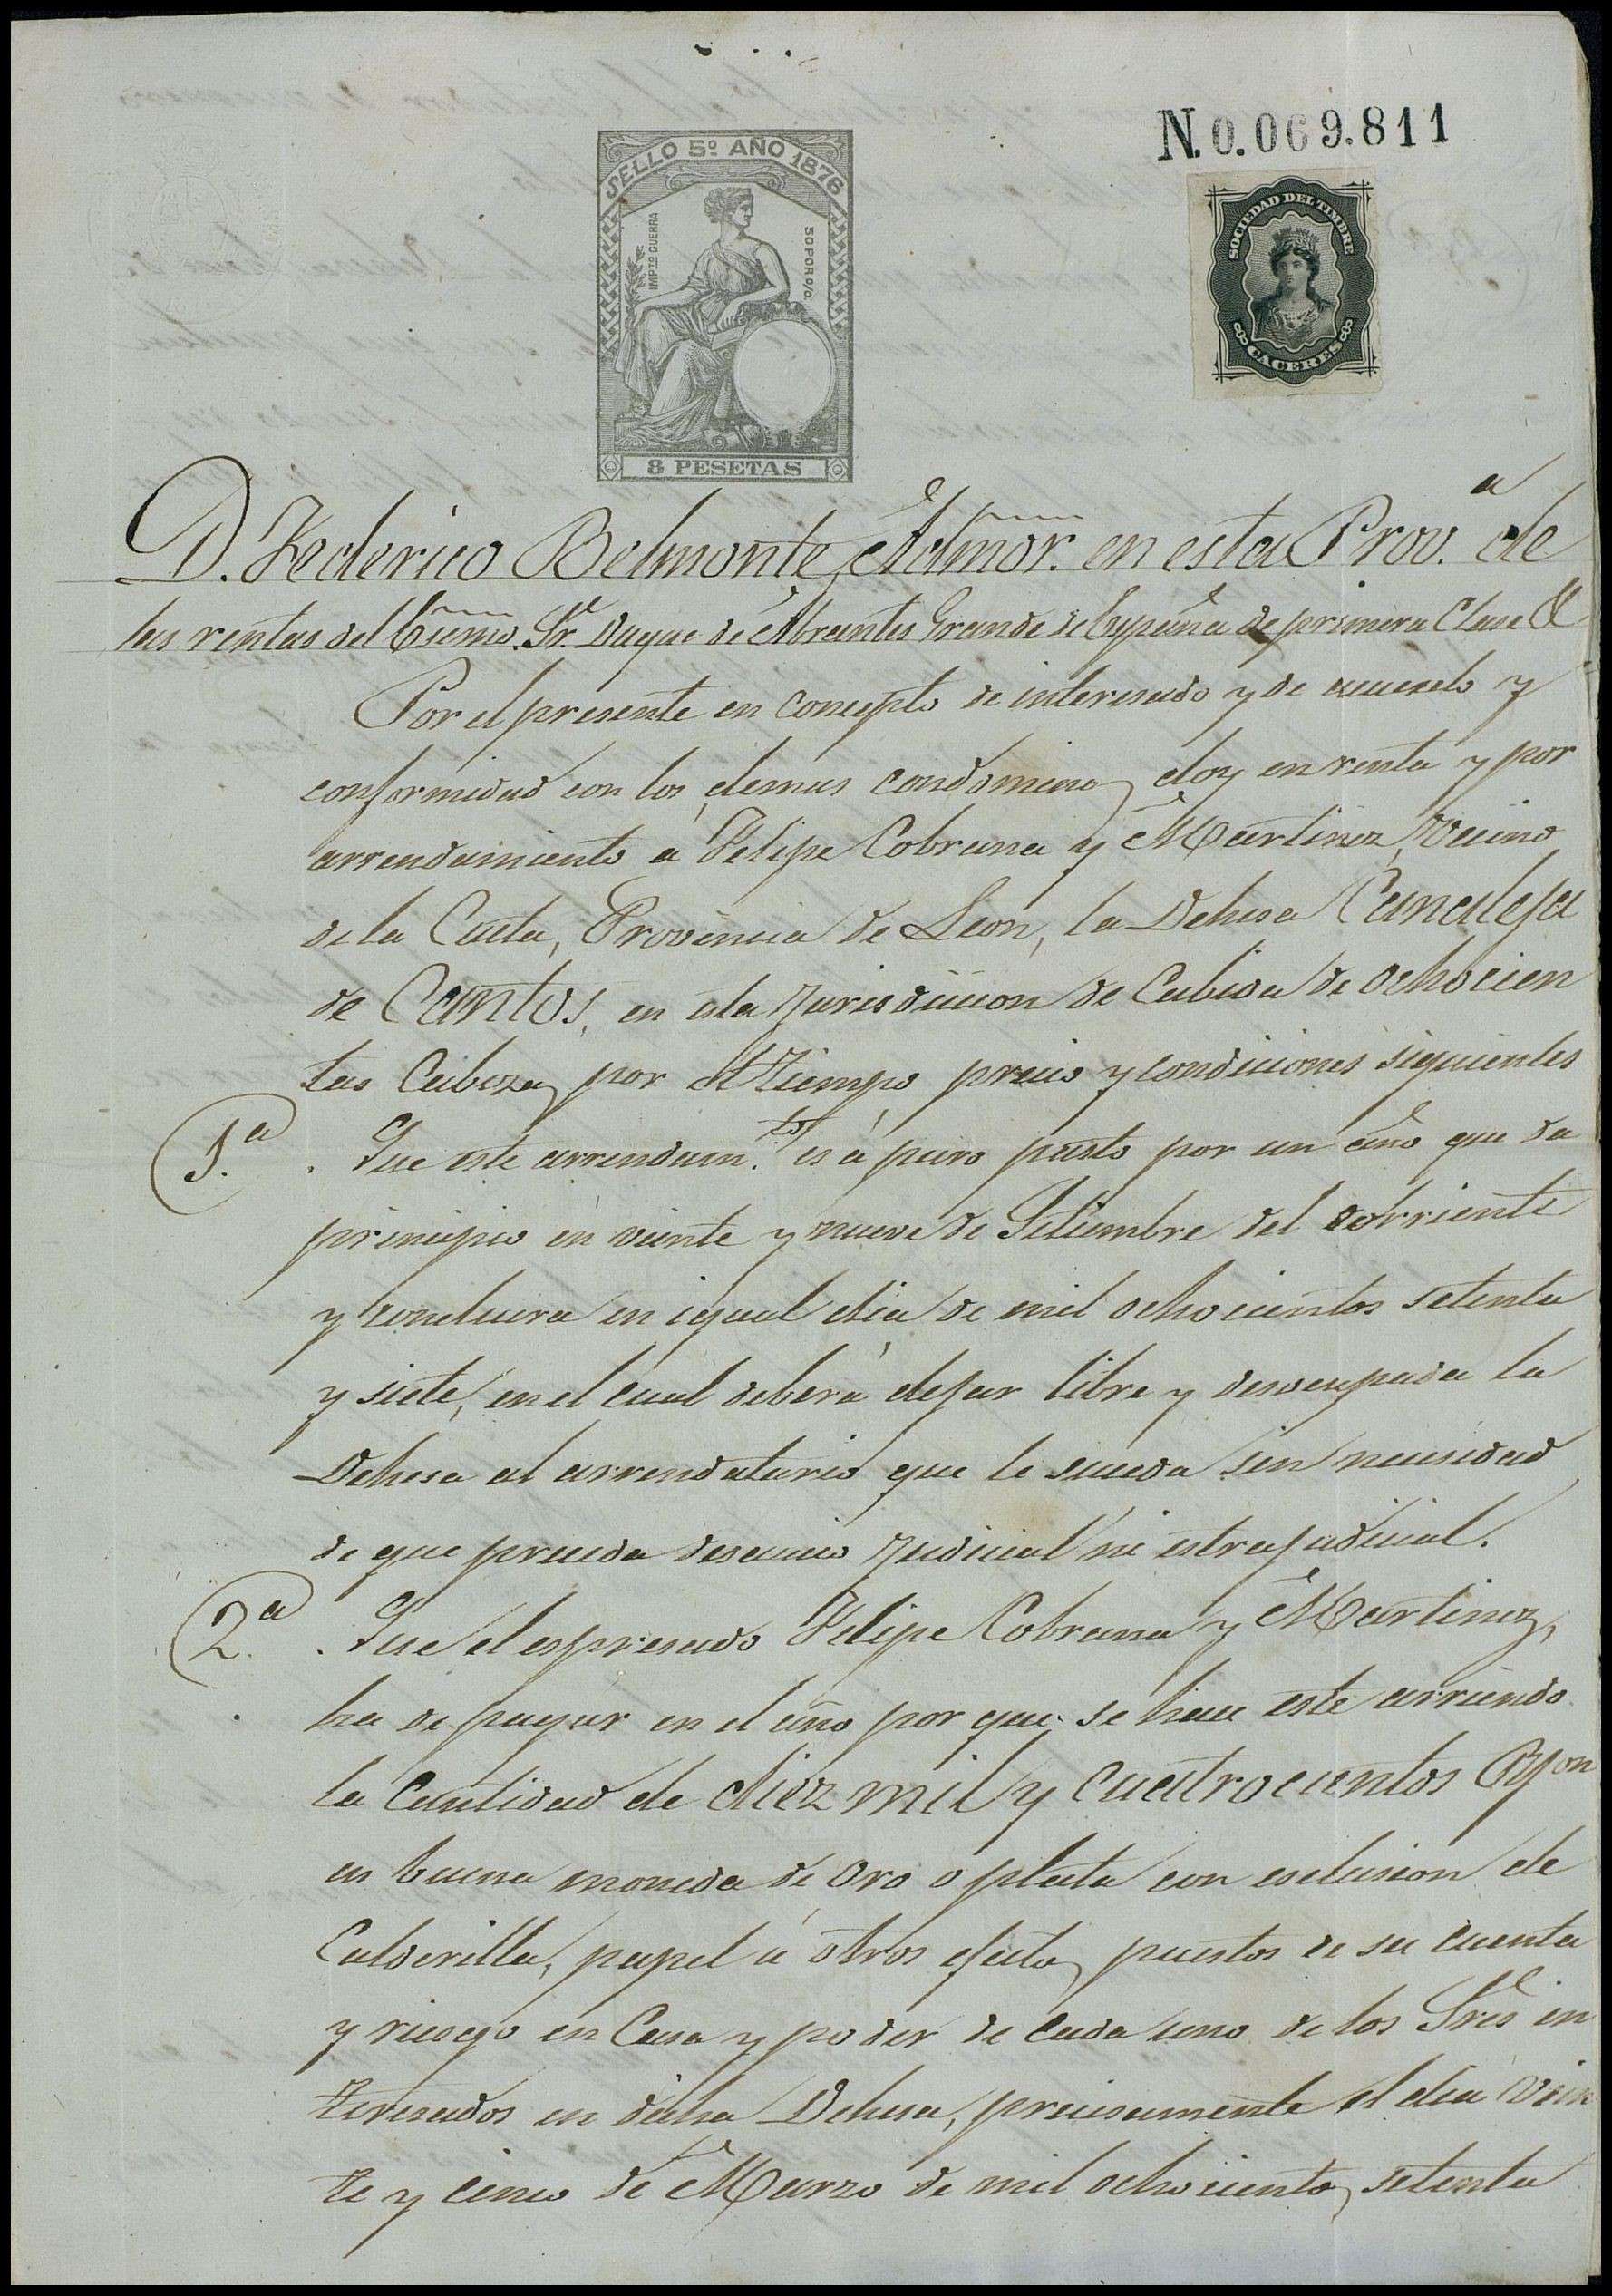 N.0.069.811
SELLO 5º AÑO 1876
IMPTO GUERRA
50 POR 0/0.
8 PESETAS
SOCIEDAD DEL TIMBRE
CACERES
D. Federico Belmonte, Admor. en esta Prov.ª de
las rentas del Ecsmo. Sr. Duque de Abrantes Grande de España de primera Clase &
Por el presente en concepto de interesado y de acuerdo y
conformidad con los demas condominos doy en renta y por
arrendamiento á Felipe Cobrana y Martinez, vecino
de la Cueta, Provincia de Leon, la Dehesa Canaleja
de Cantos, en esta Jurisdiccion de Cabida de ochocien
tas Cabezas por el tiempo precio y condiciones siguientes
1.ª Que este arrendam.to es á puro pasto por un año que da
principio en veinte y nueve de Setiembre del corriente
y concluira en igual dia de mil ochocientos setenta
y siete, en el cual deberá dejar libre y desocupada la
Dehesa al arrendatario que le suceda sin necesidad
de que preceda desaucio Judicial ni estrajudicial.
2.ª Que el espresado Felipe Cobrana y Martinez,
ha de pagar en el año por que se hace este arriendo
la Cantidad de diez mil y cuatrocientos Rs von
en buena moneda de oro o plata con esclusion de
Calderilla, papel ú otros efectos puestos de su cuenta
y riesgo en Casa y poder de cada uno de los Sres in
teresados en dicha Dehesa, precisamente el dia vein
te y cinco de Marzo de mil ochocientos setenta